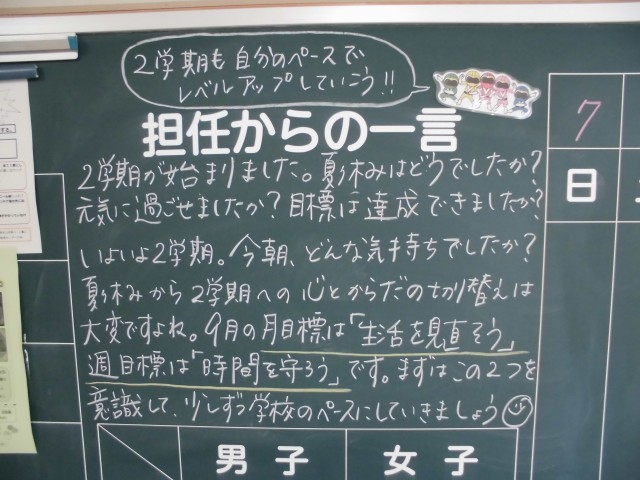 2学期も自分のペースで
レベルアップしていこう!!
担任からの一言
7
日
2学期が始まりました。夏休みはどうでしたか?
元気に過ごせましたか?目標は達成できましたか?
いよいよ2学期。今朝、どんな気持ちでしたか?
夏休みから2学期への心とからだの切り替えは
大変ですよね。9月の月目標は「生活を見直そう」
週目標は「時間を守ろう」です。まずはこの2つを
意識して、少しずつ学校のペースにしていきましょう
男子
女子